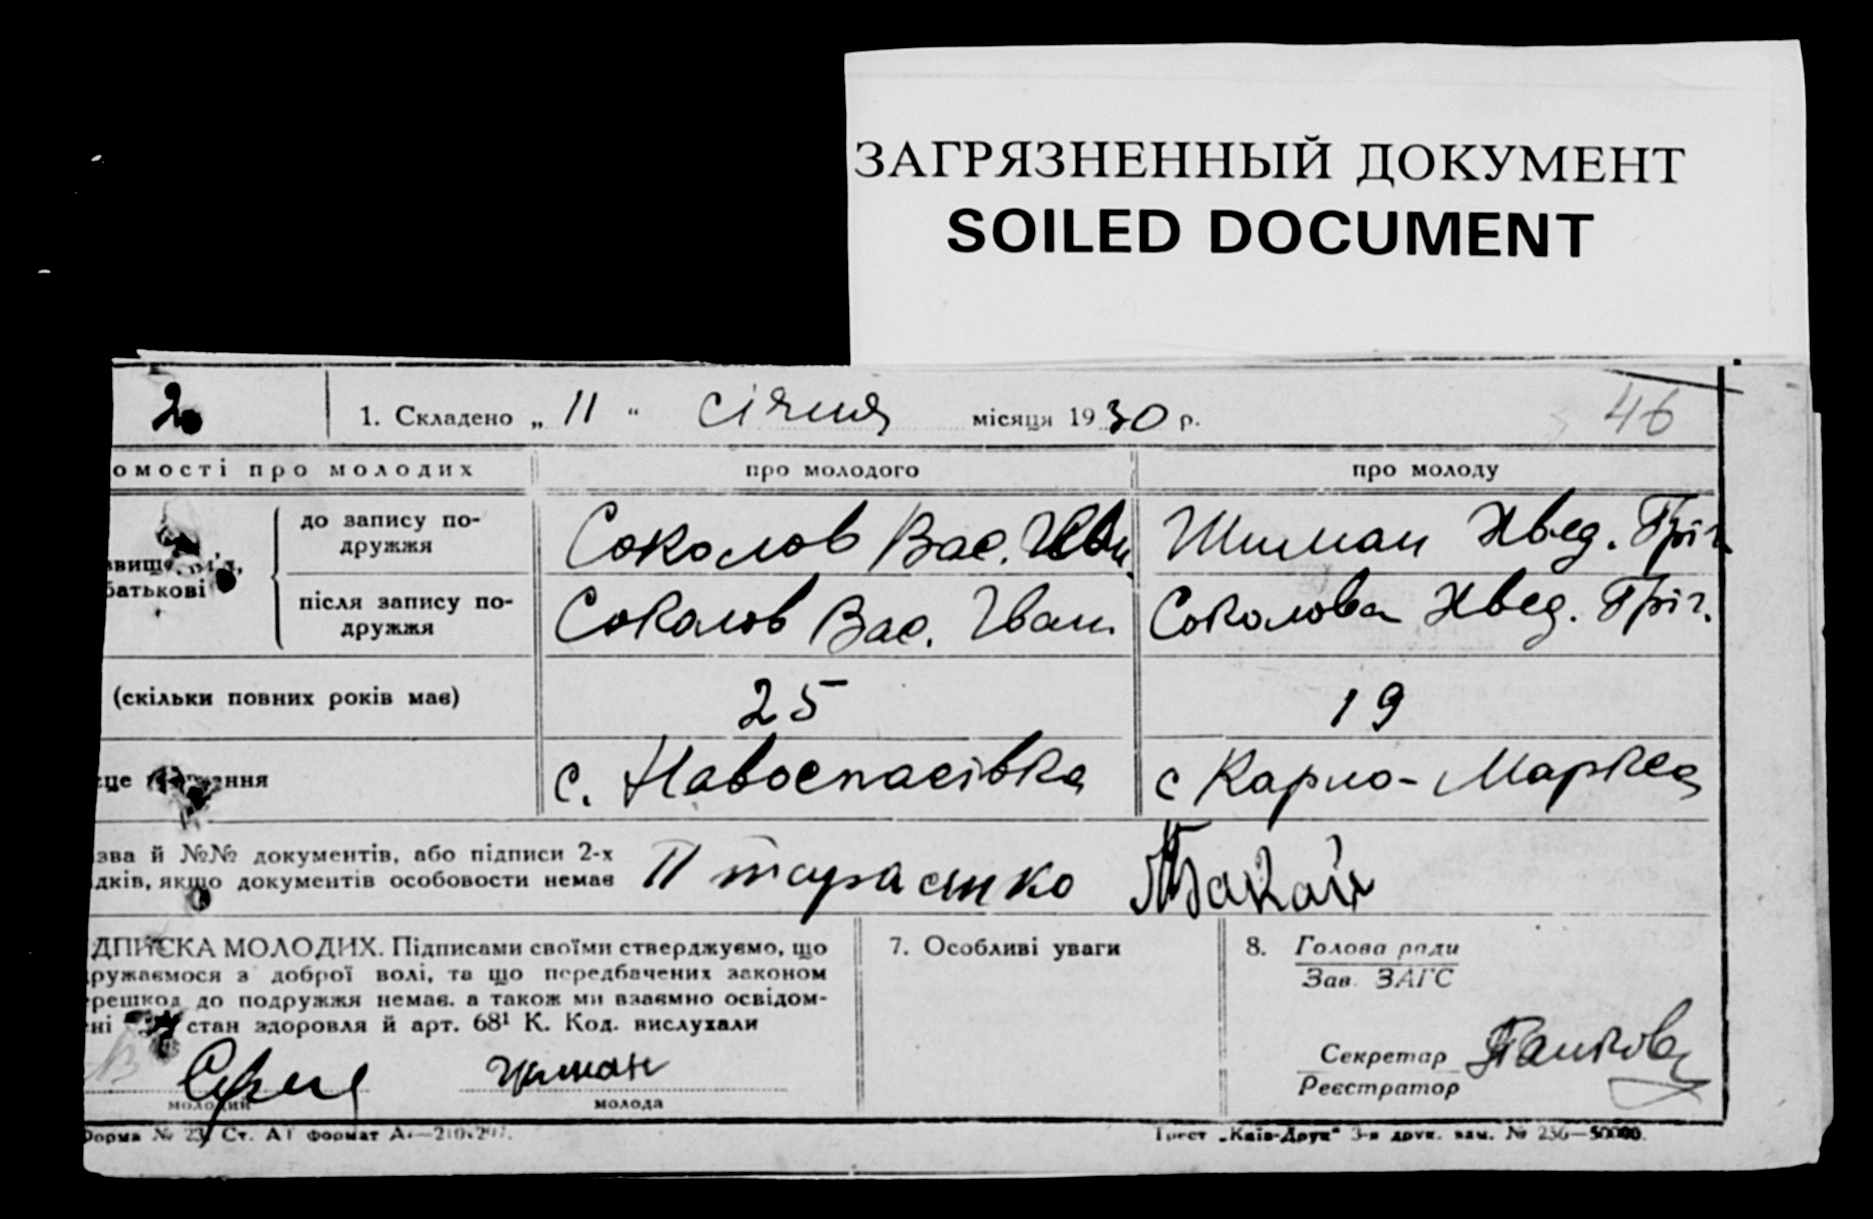 ЗАГРЯЗНЕННЫЙ ДОКУМЕНТ
SOILED DOCUMENT
2
1. Складено „ 11 “ січня місяця 1930 р.
46
омості про молодих
про молодого
про молоду
до запису по-
дружжя
Соколов Вас. Іван.
Шиман Хвед. Григ.
батькові
після запису по-
дружжя
Соколов Вас. Іван.
Соколова Хвед. Григ.
(скільки повних років має)
25
19
с. Навоспасівка
с Карло-Маркса
зва й №№ документів, або підписи 2-х
дків, якщо документів особовости немає
Бакай
ДПИСКА МОЛОДИХ. Підписами своїми стверджуємо, що
ружаємося з доброї волі, та що передбачених законом
решкод до подружжя немає, а також ми взаємно освідом-
ні стан здоровля й арт. 68¹ К. Код. вислухали
молодий
молода
7. Особливі уваги
8. Голова ради
Зав. ЗАГС
Секретар
Реєстратор
Форма № 23 Ст. А1 формат А4—210×297.
Трест „Київ-Друк“ 3-я друк. зам. № 236—50000.